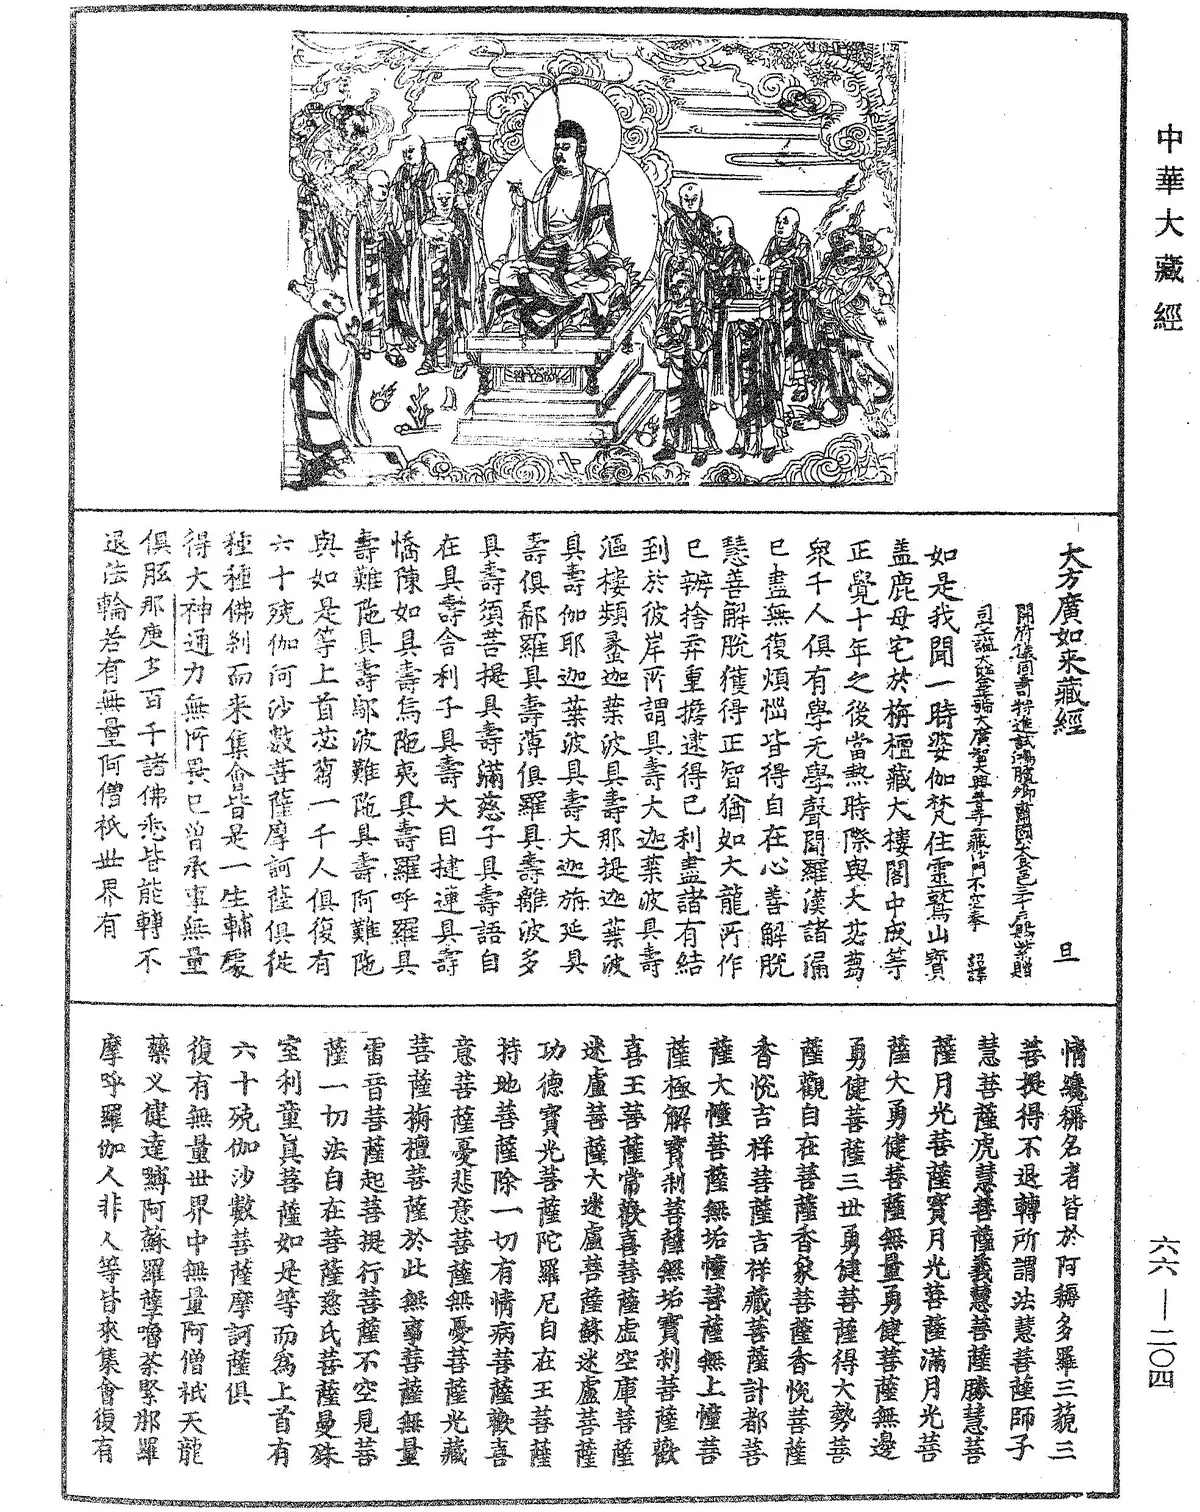 中華大藏經
大方廣如來藏經　旦
開府儀同三司特進試鴻臚卿肅國公食邑三千戶賜紫贈
司空謚大鑒正號大廣智大興善寺三藏沙門不空奉　詔譯
如是我聞一時婆伽梵住靈鷲山寶
蓋鹿母宅於栴檀藏大樓閣中成等
正覺十年之後當熱時際與大苾蒭
眾千人俱有學无學聲聞羅漢諸漏
已盡無復煩惱皆得自在心善解脫
慧善解脫獲得正智猶如大龍所作
已辦捨弃重擔逮得己利盡諸有結
到於彼岸所謂具壽大迦葉波具壽
漚樓頻蠡迦葉波具壽那提迦葉波
具壽伽耶迦葉波具壽大迦旃延具
壽俱郗羅具壽薄俱羅具壽離波多
具壽須菩提具壽滿慈子具壽語自
在具壽舍利子具壽大目揵連具壽
憍陳如具壽烏陁夷具壽羅呼羅具
壽難陁具壽鄔波難陁具壽阿難陁
與如是等上首苾蒭一千人俱復有
六十殑伽河沙數菩薩摩訶薩俱從
種種佛剎而來集會皆是一生補處
得大神通力無所畏已曾承事無量
俱胝那庾多百千諸佛悉皆能轉不
退法輪若有無量阿僧祇世界有
情纔稱名者皆於阿耨多羅三藐三
菩提得不退轉所謂法慧菩薩師子
慧菩薩虎慧菩薩義慧菩薩勝慧菩
薩月光菩薩寶月光菩薩滿月光菩
薩大勇健菩薩無量勇健菩薩無邊
勇健菩薩三世勇健菩薩得大勢菩
薩觀自在菩薩香象菩薩香悅菩薩
香悅吉祥菩薩吉祥藏菩薩計都菩
薩大幢菩薩無垢幢菩薩無上幢菩
薩極解寶剎菩薩無垢寶剎菩薩歡
喜王菩薩常歡喜菩薩虛空庫菩薩
迷盧菩薩大迷盧菩薩蘇迷盧菩薩
功德寶光菩薩陀羅尼自在王菩薩
持地菩薩除一切有情病菩薩歡喜
意菩薩憂悲意菩薩無憂菩薩光藏
菩薩栴檀菩薩於此無爭菩薩無量
雷音菩薩起菩提行菩薩不空見菩
薩一切法自在菩薩慈氏菩薩曼殊
室利童真菩薩如是等而為上首有
六十殑伽沙數菩薩摩訶薩俱
復有無量世界中無量阿僧祇天龍
藥叉健達嚩阿蘇羅孽嚕荼緊那羅
摩呼羅伽人非人等皆來集會復有
六六—二〇四